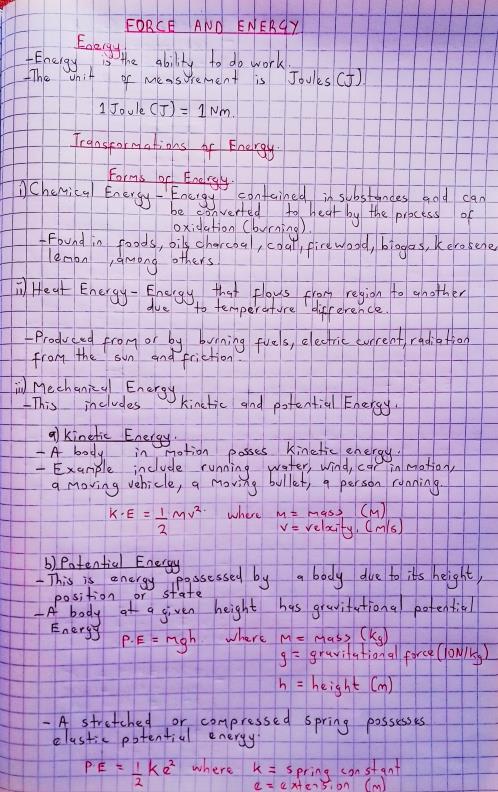 FORCE AND ENERGY
Energy
-Energy is the ability to do work.
-The unit of measurement is Joules (J).
1 Joule (J) = 1 Nm.
Transformations of Energy.
Forms of Energy.
i) Chemical Energy - Energy contained in substances and can
be converted to heat by the process of
oxidation (burning).
-Found in foods, oils, charcoal, coal, firewood, biogas, kerosene,
lemon, among others.
ii) Heat Energy - Energy that flows from region to another
due to temperature difference.
-Produced from or by burning fuels, electric current, radiation
from the sun and friction.
iii) Mechanical Energy
-This includes kinetic and potential Energy.
a) Kinetic Energy.
- A body in motion posses kinetic energy.
- Example include running water, wind, car in motion,
a moving vehicle, a moving bullet, a person running.
K.E = 1/2 mv² where m = mass (M)
v = velocity. (m/s)
b) Potential Energy
-This is energy possessed by a body due to its height,
position or state
-A body at a given height has gravitational potential
Energy
P.E = mgh where m = mass (kg)
g = gravitational force (10N/kg)
h = height (m)
- A stretched or compressed spring possesses
elastic potential energy.
P.E = 1/2 ke² where k = spring constant
e = extension (m)